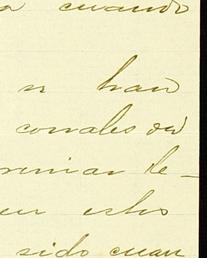 a cuando
se han
corrales del
venian de-
en estos
sido cuan